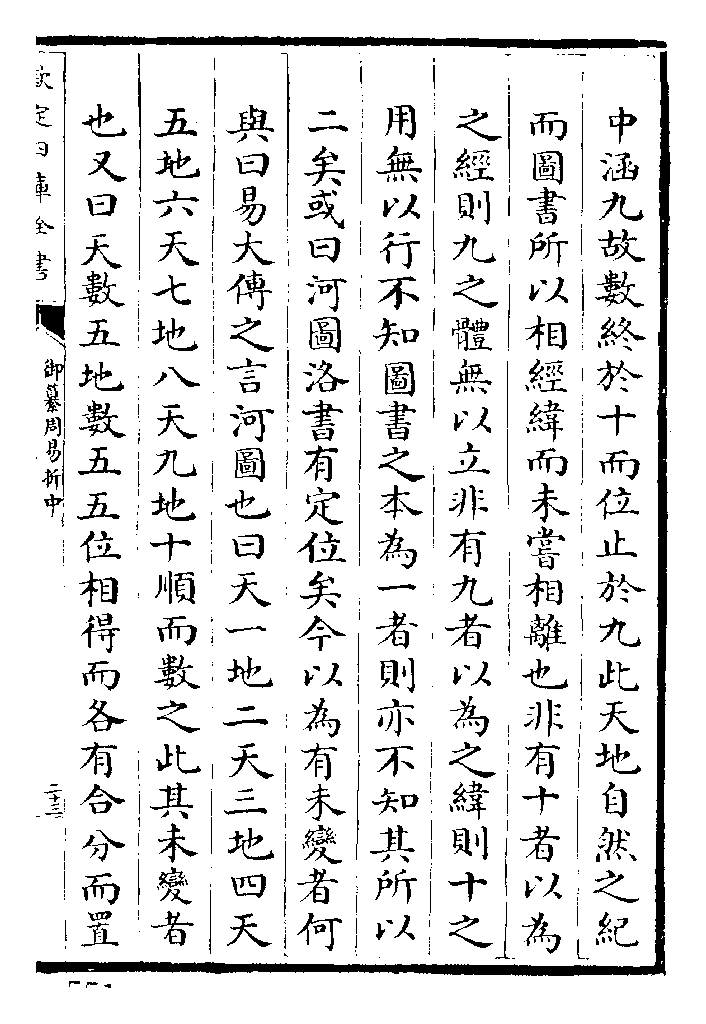 中涵九故數終於十而位止於九此天地自然之紀
而圖書所以相經緯而未嘗相離也非有十者以為
之經則九之體無以立非有九者以為之緯則十之
用無以行不知圖書之本為一者則亦不知其所以
二矣或曰河圖洛書有定位矣今以為有未變者何
與曰易大傳之言河圖也曰天一地二天三地四天
五地六天七地八天九地十順而數之此其未變者
也又曰天數五地數五五位相得而各有合分而置
欽定四庫全書
御纂周易折中
二十三